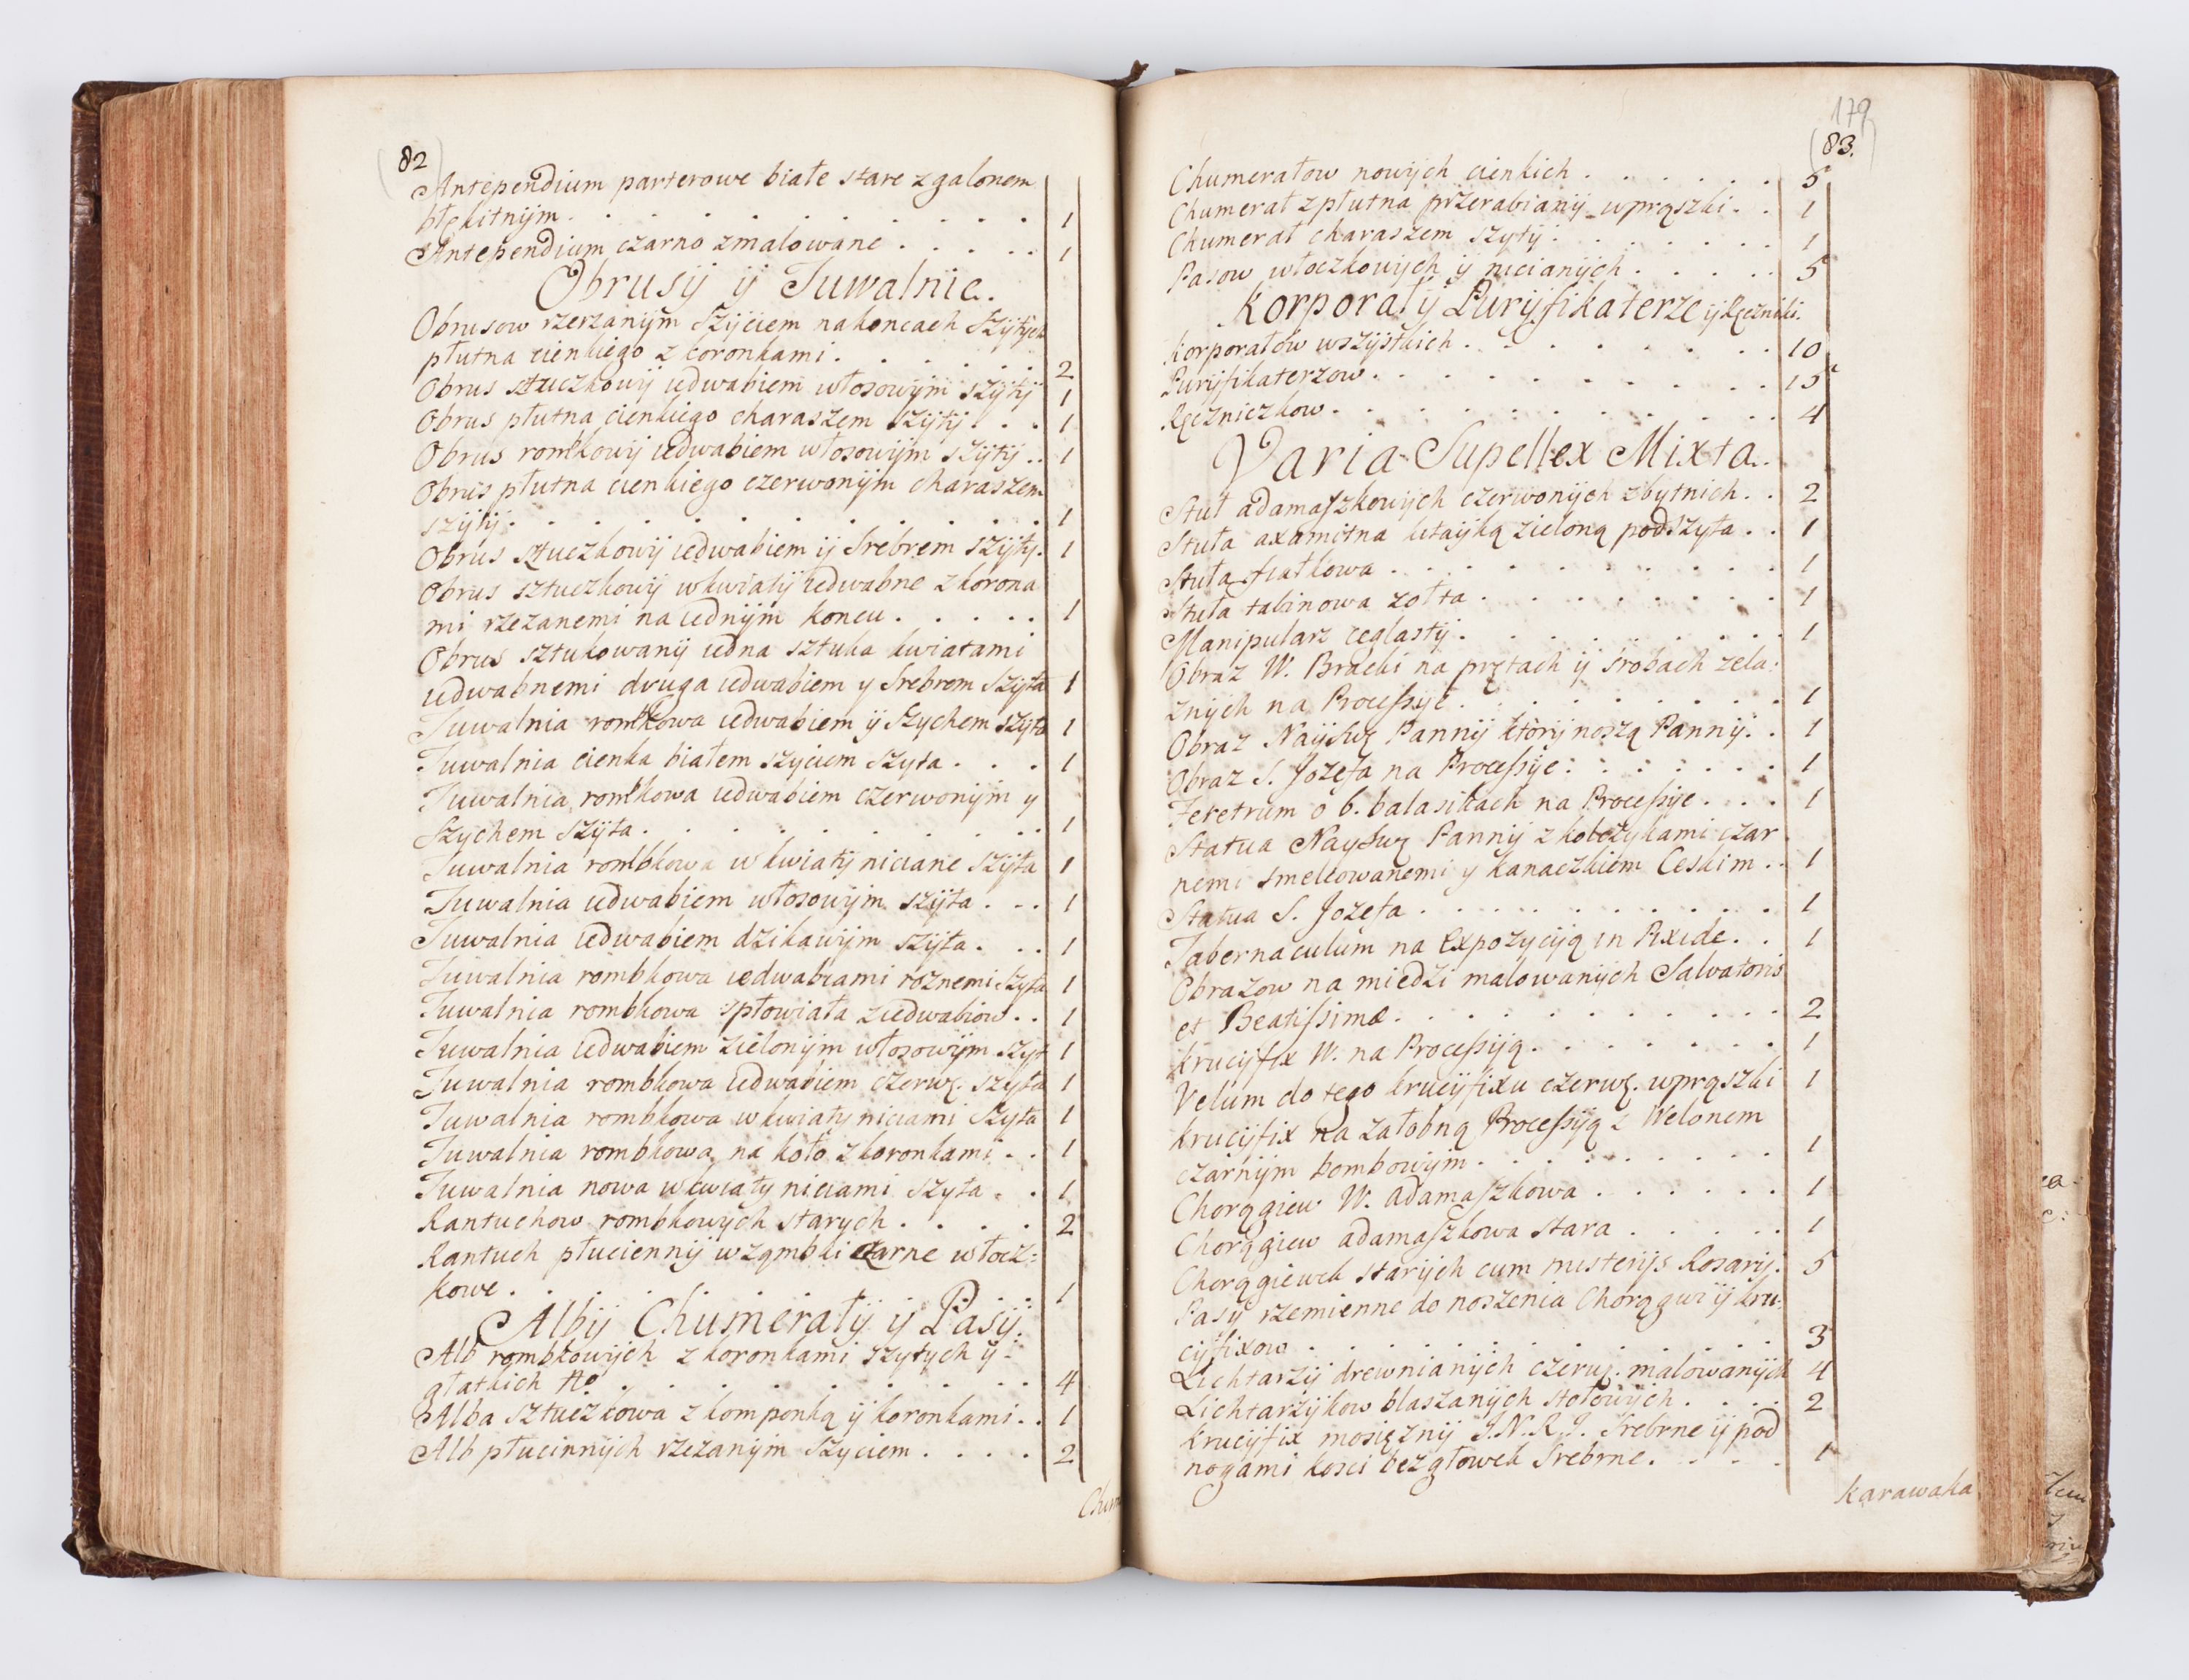 82
Antependium parterowe białe stare z galonem
błękitnÿm . . . . . . . . . . . . 1
Antependium czarno zmalowane . . . . . 1
Obrusÿ ÿ Tuwalnie.
Obrusow rzerzanÿm Szÿciem na koncach Szÿtÿch
płutna cienkiego z koronkami . . . . . . 2
Obrus sztuczkowÿ iedwabiem włosowÿm szÿtÿ 1
Obrus płutna cienkiego charaszem szÿtÿ . . . 1
Obrus rombkowÿ iedwabiem włosowÿm szÿtÿ . . 1
Obrus płutna cienkiego czerwonÿm charaszem
szÿtÿ . . . . . . . . . . . . 1
Obrus sztuczkowÿ iedwabiem ÿ Srebrem szÿtÿ. 1
Obrus sztuczkowÿ w kwiatÿ iedwabne z korona
mi rzezanemi na iednÿm koncu . . . . . 1
Obrus sztukowanÿ iedna sztuka kwiatami
iedwabnemi druga iedwabiem y Srebrem szÿta 1
Tuwalnia rombkowa iedwabiem ÿ Szychem szÿta 1
Tuwalnia cienka białem szyciem szyta . . . 1
Tuwalnia rombkowa iedwabiem czerwonÿm y
Szychem szÿta . . . . . . . . . . 1
Tuwalnia rombkowa w kwiatÿ niciane szÿta 1
Tuwalnia iedwabiem włosowÿm szÿta . . . 1
Tuwalnia iedwabiem dzikawÿm szÿta . . . 1
Tuwalnia rombkowa iedwabiami roznemi szyta 1
Tuwalnia rombkowa spłowiała z iedwabiow . . 1
Tuwalnia iedwabiem zielonÿm włosowÿm szyt 1
Tuwalnia rombkowa iedwabiem czerwę. szyta 1
Tuwalnia rombkowa w kwiaty niciami szyta 1
Tuwalnia rombkowa na koło z koronkami . . 1
Tuwalnia nowa w kwiaty niciami szyta . . 1
Rantuchow rombkowÿch starych . . . . 2
Rantuch płuciennÿ w ząmbki czarne włocz:
kowe . . . . . . . . . . . 1
Albÿ Chumerałÿ ÿ Pasÿ.
Alb rombkowÿch z koronkami szytych ÿ
głatkich No . . . . . . . . . . 4
Alba sztuczkowa z komponką ÿ koronkami . . 1
Alb płucinnÿch rzezanÿm szyciem . . . . 2
Chum
179
83.
Chumerałow nowÿch cienkich . . . . . . 5
Chumerał z płutna przerabianÿ w prąszki . . 1
Chumerał charaszem szytÿ . . . . . . . 1
Pasow włoczkowÿch ÿ nicianÿch . . . . . 5
Korporałÿ Purÿfikaterze ÿ Ręczniki.
Korporałow wszÿstkich . . . . . . . . 10
Purÿfikaterzow . . . . . . . . . . 15
Ręczniczkow . . . . . . . . . . . 4
Varia Supellex Mixta.
Stuł adamaszkowÿch czerwonÿch zbytnich . . 2
Stuła axamitna kitaÿką zieloną podszyta . . 1
Stuła fiałkowa . . . . . . . . . . 1
Stuła tabinowa zołta . . . . . . . . 1
Manipularz ceglastÿ . . . . . . . . . 1
Obraz W. Bracki na prętach ÿ srobach zela:
znÿch na Processÿe . . . . . . . . . 1
Obraz Naÿswę Pannÿ ktorÿ noszą Pannÿ . . 1
Obraz S. Jozefa na Processÿe . . . . . . . 1
Feretrum o 6. balasikach na Processÿe . . . 1
Statua Nayswę Pannÿ z kolczykami czar
nemi smelcowanemi y kanaczkiem Ceskim . . 1
Statua S. Jozefa . . . . . . . . . . 1
Tabernaculum na Expozycÿą in Pixide . . 1
Obrazow na miedzi malowanÿch Salvatoris
et Beatissimæ . . . . . . . . . . 2
Krucÿfix W. na Processÿą . . . . . . . 1
Velum do tego krucÿfixu czerwę. w prąszki 1
Krucÿfix na załobną Processÿą z Welonem
czarnÿm bombowÿm . . . . . . . . 1
Chorągiew W. adamaszkowa . . . . . . 1
Chorągiew adamaszkowa stara . . . . . 1
Chorągiewek starÿch cum misterÿs Rosarÿ. 5
Pasÿ rzemienne do noszenia Chorągwi ÿ kru:
cÿfixow . . . . . . . . . . . 3
Lichtarzÿ drewnianÿch czerwę. malowanÿch 4
Lichtarzÿkow blaszanÿch stołowÿch . . . . 2
Krucÿfix mosięznÿ I.N.R.I. srebrne ÿ pod
nogami kosci bez głowek srebrne . . . . 1
Karawaka